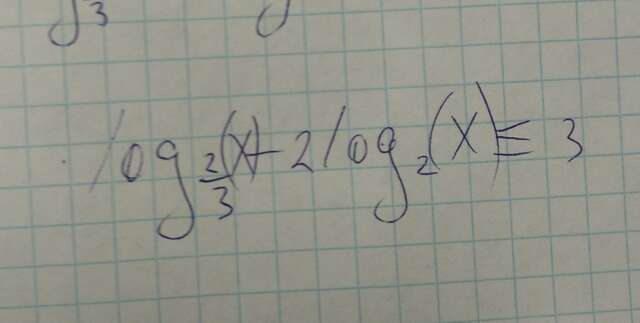 3
log_{\frac{2}{3}}(x) - 2log_2(x) ≤ 3